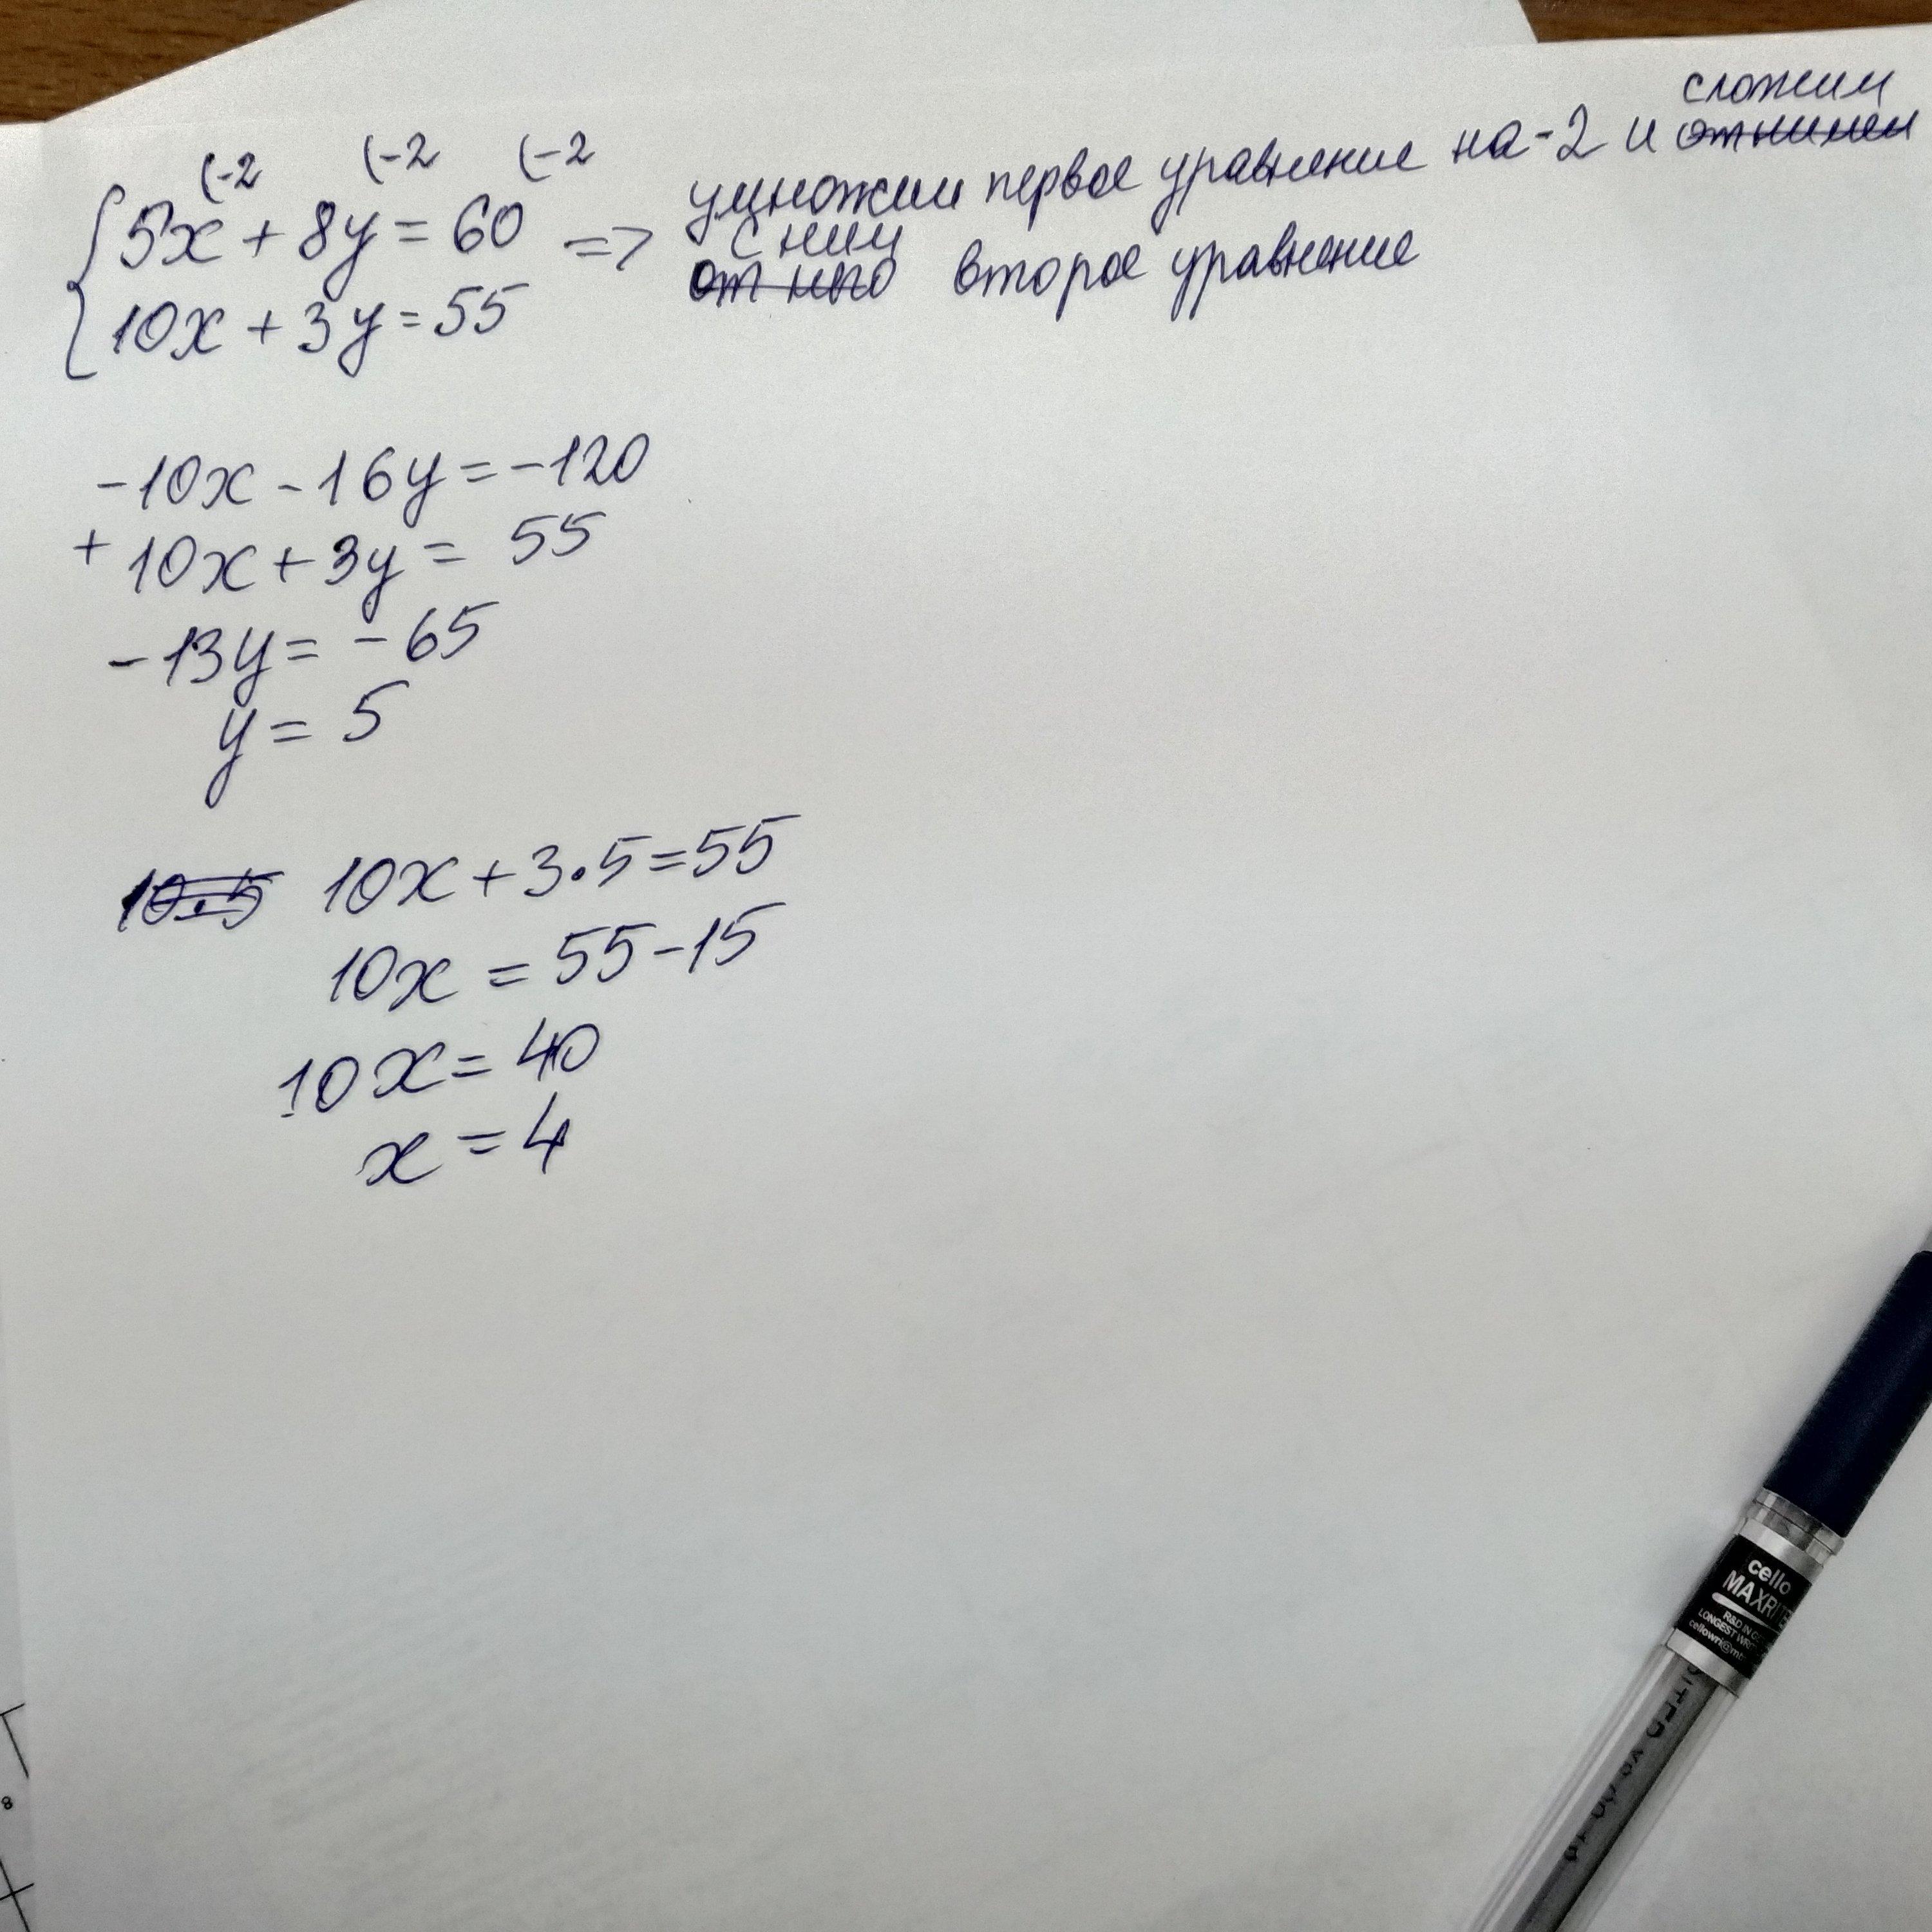 (-2 (-2 (-2
5x + 8y = 60 => умножим первое уравнение на -2 и сложим отнимем
10x + 3y = 55 с ним от него второе уравнение
-10x - 16y = -120
+ 10x + 3y = 55
-13y = -65
y = 5
10.5 10x + 3·5 = 55
10x = 55 - 15
10x = 40
x = 4
cello
MAXRITE
R&D IN
LONGEST
8